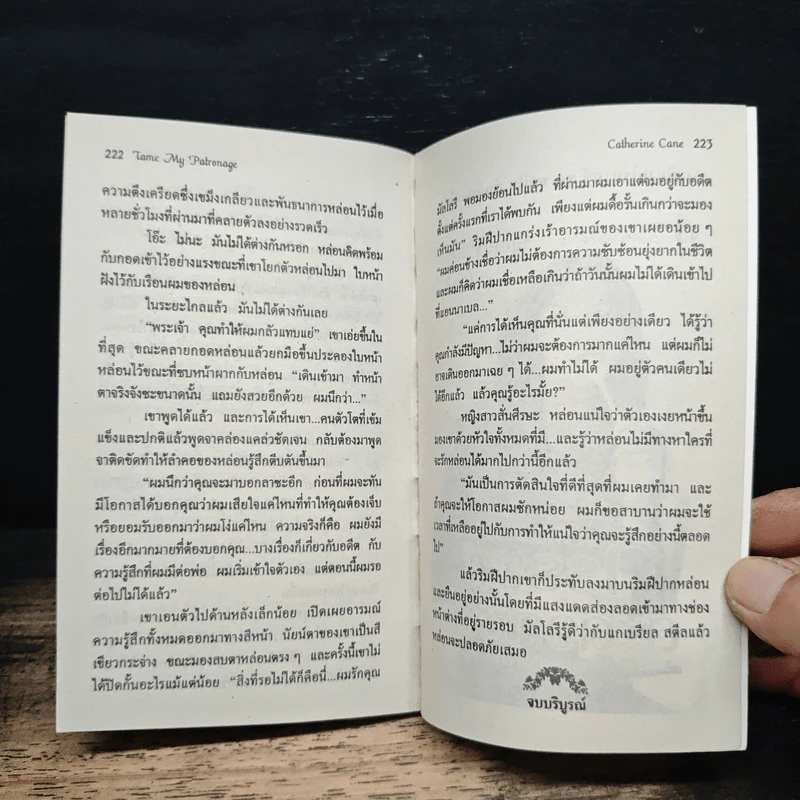 222 Tame My Patronage
ความตึงเครียดซึ่งเขม็งเกลียวและพันธนาการหล่อนไว้เมื่อ
หลายชั่วโมงที่ผ่านมาก็คลายตัวลงอย่างรวดเร็ว
โอ๊ะ ไม่นะ มันไม่ได้ต่างกันหรอก หล่อนคิดพร้อม
กับกอดเข้าไว้อย่างแรงขณะที่เขาโยกตัวหล่อนไปมา ใบหน้า
ฝังไว้กับเรือนผมของหล่อน
ในระยะไกลแล้ว มันไม่ได้ต่างกันเลย
“พระเจ้า คุณทำให้ผมกลัวแทบแย่” เขาเอ่ยขึ้นใน
ที่สุด ขณะคลายกอดหล่อนแล้วยกมือขึ้นประคองใบหน้า
หล่อนไว้ขณะที่ซบหน้าผากกับหล่อน “เดินเข้ามา ทำหน้า
ตาจริงจังซะขนาดนั้น แถมยังสวยอีกด้วย ผมนึกว่า...”
เขาพูดได้แล้ว และการได้เห็นเขา...คนตัวโตที่เข้ม
แข็งและปกติแล้วพูดจาคล่องแคล่วชัดเจน กลับต้องมาพูด
จาติดขัดทำให้ลำคอของหล่อนรู้สึกตีบตันขึ้นมา
“ผมนึกว่าคุณจะมาบอกลาซะอีก ก่อนที่ผมจะทัน
มีโอกาสได้บอกคุณว่าผมเสียใจแค่ไหนที่ทำให้คุณต้องเจ็บ
หรือยอมรับออกมาว่าผมโง่แค่ไหน ความจริงก็คือ ผมยังมี
เรื่องอีกมากมายที่ต้องบอกคุณ...บางเรื่องก็เกี่ยวกับอดีต กับ
ความรู้สึกที่ผมมีต่อพ่อ ผมเริ่มเข้าใจตัวเอง แต่ตอนนี้ผมรอ
ต่อไปไม่ได้แล้ว”
เขาเอนตัวไปด้านหลังเล็กน้อย เปิดเผยอารมณ์
ความรู้สึกทั้งหมดออกมาทางสีหน้า นัยน์ตาของเขาเป็นสี
เขียวกระจ่าง ขณะมองสบตาหล่อนตรง ๆ และครั้งนี้เขาไม่
ได้ปิดกั้นอะไรแม้แต่น้อย “สิ่งที่รอไม่ได้ก็คือนี่...ผมรักคุณ
Catherine Cane 223
มัลโลรี พอมองย้อนไปแล้ว ที่ผ่านมาผมเอาแต่จมอยู่กับอดีต
ตั้งแต่ครั้งแรกที่เราได้พบกัน เพียงแต่ผมดื้อรั้นเกินกว่าจะมอง
เห็นมัน” ริมฝีปากแกร่งเร้าอารมณ์ของเขาเผยอน้อย ๆ
“ผมค่อนข้างเชื่อว่าผมไม่ต้องการความซับซ้อนยุ่งยากในชีวิต
และผมก็คิดว่าผมเชื่อเหลือเกินว่าถ้าวันนั้นผมไม่ได้เดินเข้าไป
ที่แอนนาเบล...”
“แค่การได้เห็นคุณที่นั่นแต่เพียงอย่างเดียว ได้รู้ว่า
คุณกำลังมีปัญหา...ไม่ว่าผมจะต้องการมากแค่ไหน แต่ผมก็ไม่
อาจเดินออกมาเฉย ๆ ได้...ผมทำไม่ได้ ผมอยู่ตัวคนเดียวไม่
ได้อีกแล้ว แล้วคุณรู้อะไรมั้ย?”
หญิงสาวสั่นศีรษะ หล่อนแน่ใจว่าตัวเองเงยหน้าขึ้น
มองเขาด้วยหัวใจทั้งหมดที่มี...และรู้ว่าหล่อนไม่มีทางหาใครที่
จะรักหล่อนได้มากไปกว่านี้อีกแล้ว
“มันเป็นการตัดสินใจที่ดีที่สุดที่ผมเคยทำมา และ
ถ้าคุณจะให้โอกาสผมซักหน่อย ผมก็ขอสาบานว่าผมจะใช้
เวลาที่เหลืออยู่ไปกับการทำให้แน่ใจว่าคุณจะรู้สึกอย่างนี้ตลอด
ไป”
แล้วริมฝีปากเขาก็ประทับลงมาบนริมฝีปากหล่อน
และยืนอยู่อย่างนั้นโดยที่มีแสงแดดส่องลอดเข้ามาทางช่อง
หน้าต่างที่อยู่รายรอบ มัลโลรีรู้ดีว่ากับแกเบรียล สตีลแล้ว
หล่อนจะปลอดภัยเสมอ
จบบริบูรณ์